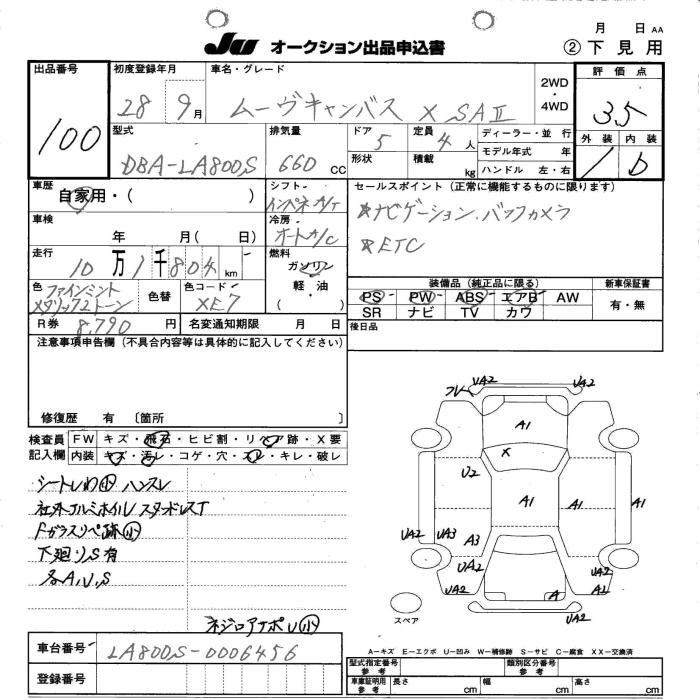 JU オークション出品申込書
月 日 AA
② 下見用
出品番号
100
初度登録年月
28 9月
車名・グレード
ムーヴキャンバス X SAⅡ
2WD
・
4WD
評価点
3.5
外装 内装
1 D
型式
DBA-LA800S
排気量
660 CC
ドア
5
形状
定員
4人
積載
kg
ディーラー・並行
モデル年式 年
ハンドル 左・右
車歴
自家用・( )
シフト
インパネA/T
セールスポイント(正常に機能するものに限ります)
★ナビゲーション、バックカメラ
★ETC
車検
年 月( 日)
冷房
オートA/C
走行
10万1千804km
燃料
ガソリン
軽・油
( )
色
ファインミント
メタリック2トーン
色替
色コード
XE7
装備品(純正品に限る)
PS PW ABS エアB AW
SR ナビ TV カワ
新車保証書
有・無
R券 8,790円
名変通知期限 月 日
後日品
注意事項申告欄(不具合内容等は具体的に記入してください)
修復歴 有 〔箇所 〕
検査員
記入欄
FW キズ・飛石・ヒビ割・リペア跡・X要
内装 キズ・汚レ・コゲ・穴・スレ・キレ・破レ
シートしわ小 ハンスレ
社外アルミホイル スタッドレスT
Fガラスリペ跡小
下廻りS有
各A,U,S
ネジロアナポU小
UA2
UA2
フレ
A1
X
U2
A1
A1
A1
UA2
UA3
A3
UA2
UA2
UA2
A
A2
UA2
スペア
車台番号
LA800S-0006456
登録番号
A-キズ E-エクボ U-凹み W-補修跡 S-サビ C-腐食 XX-交換済
型式指定番号
参考
類別区分番号
参考
車庫証明用
参考
長さ
幅
高さ
cm
cm
cm